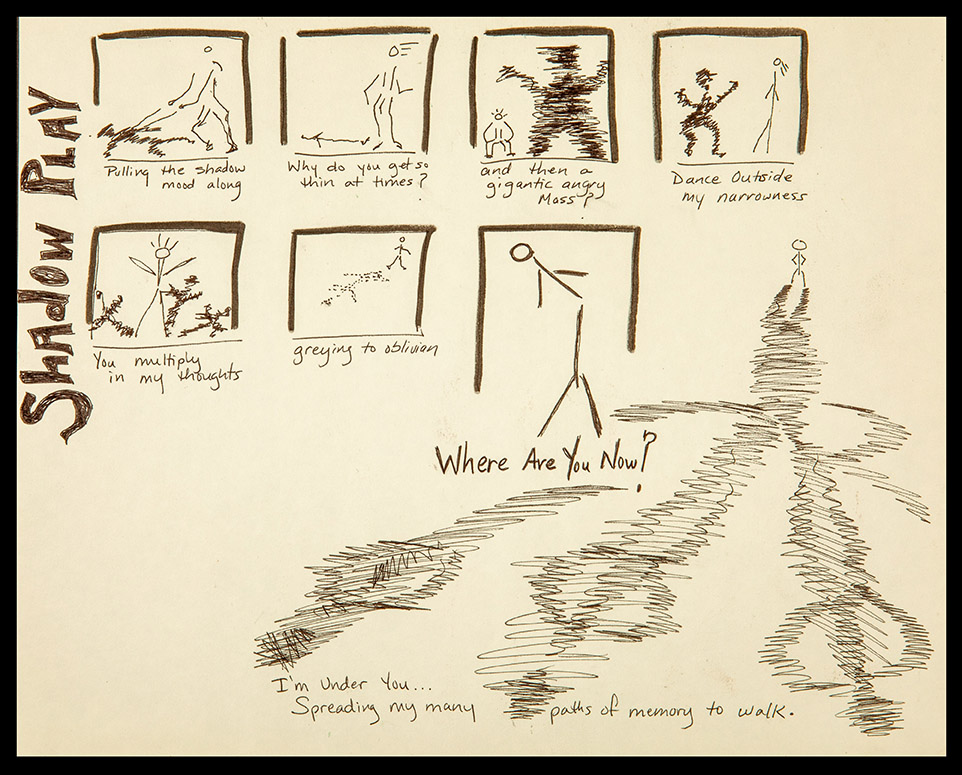 Shadow Play
Pulling the shadow
mood along
Why do you get so
thin at times?
and then a
gigantic angry
Mass?
Dance Outside
my narrowness
You multiply
in my thoughts
greying to oblivian
Where Are You Now?
I'm Under You...
Spreading my many paths of memory to walk.